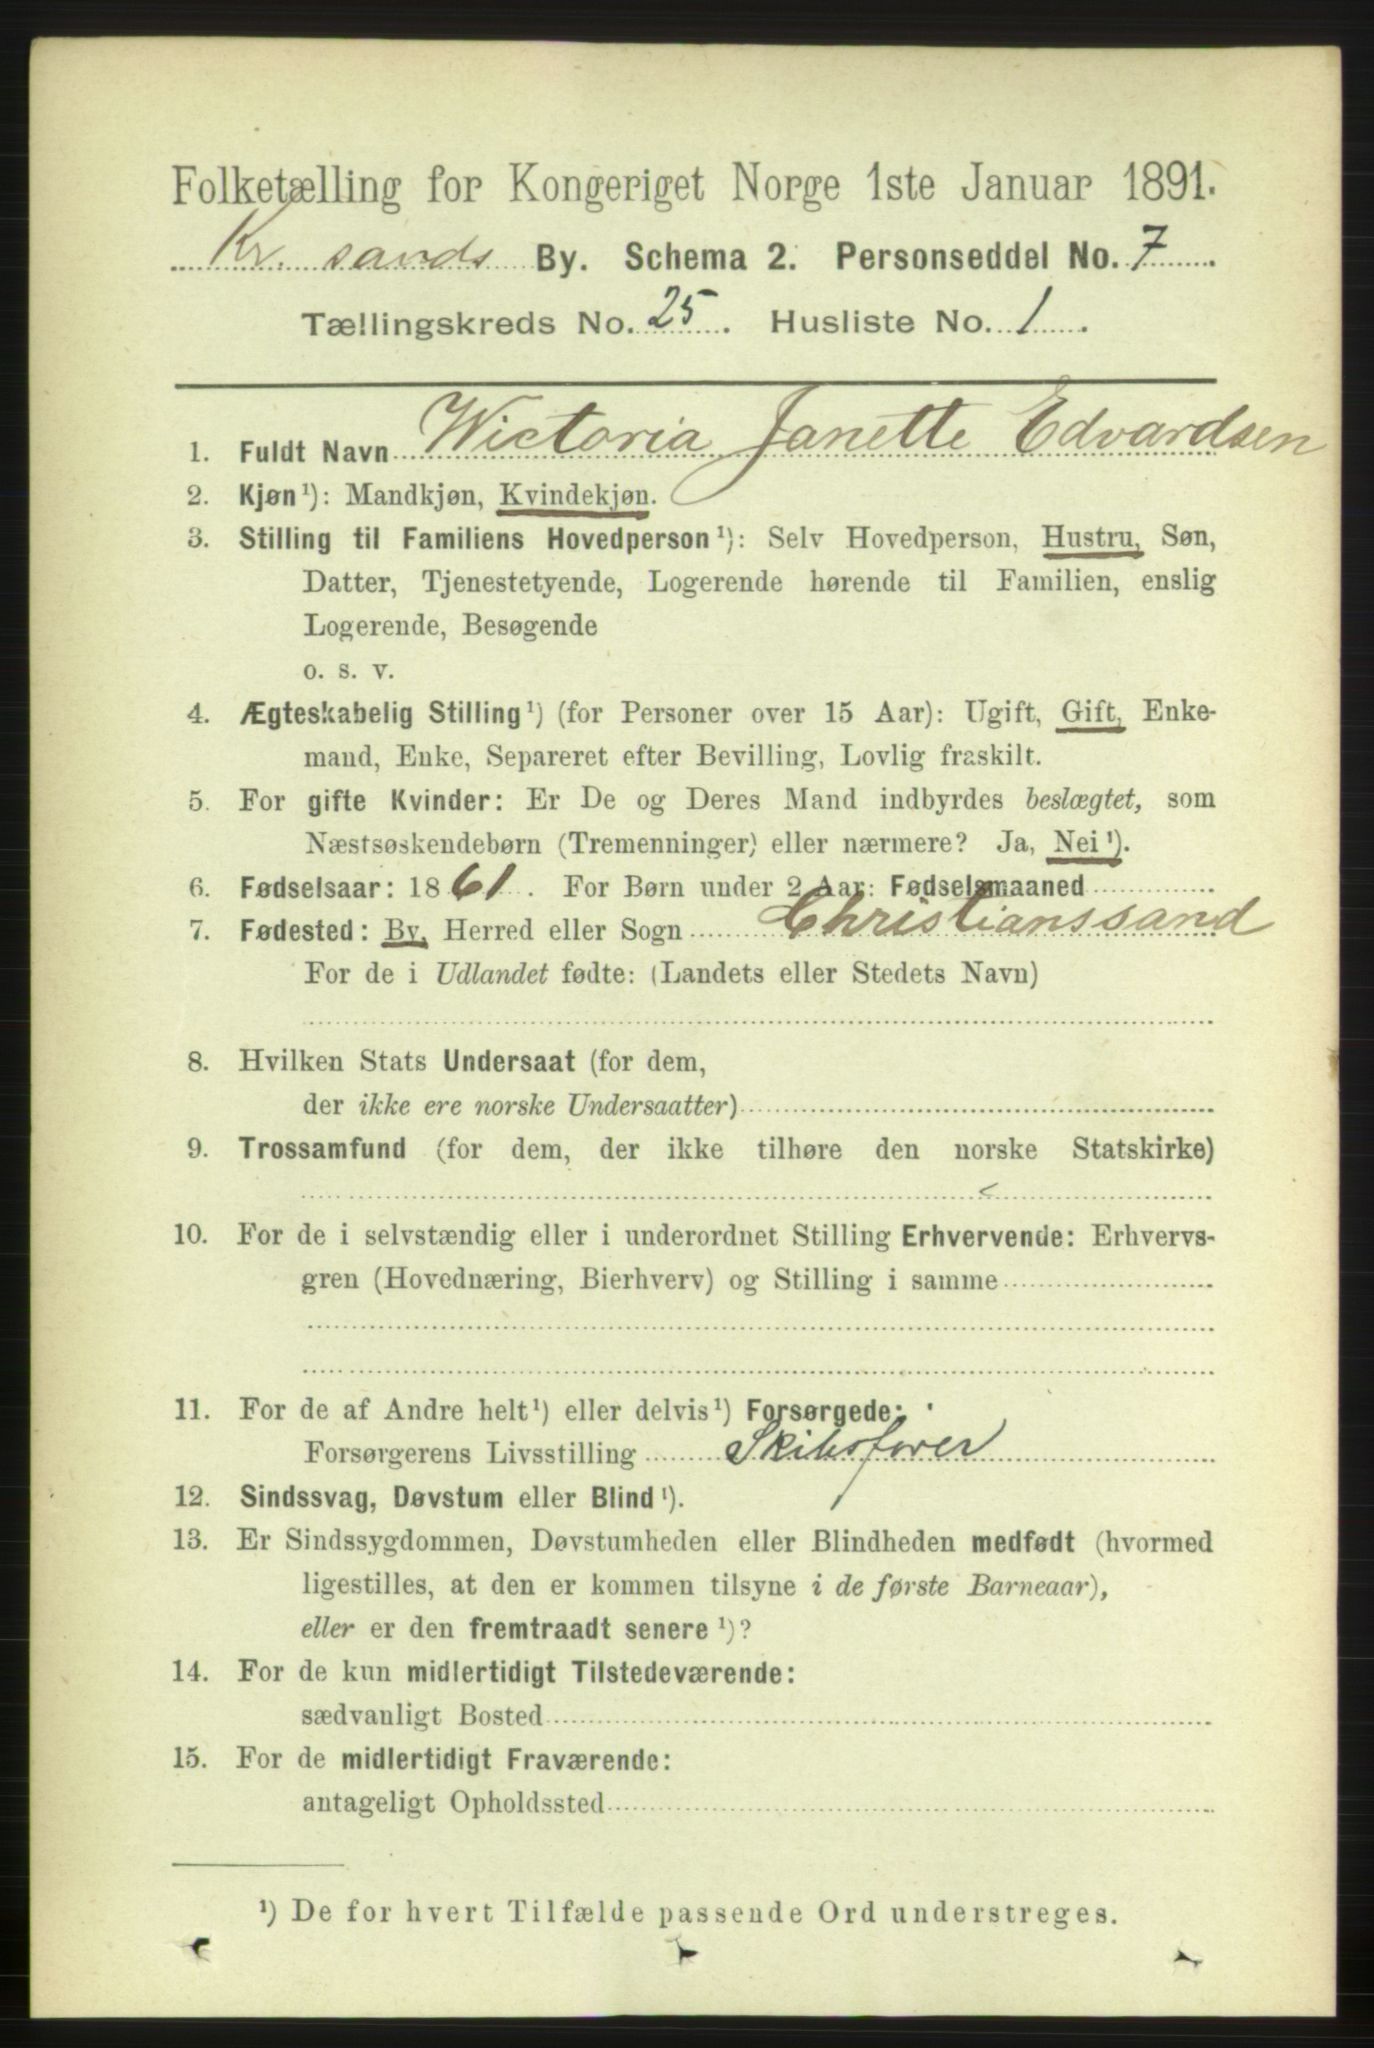 Folketælling for Kongeriget Norge 1ste Januar 1891.
Kr. sands By. Schema 2. Personseddel No. 7
Tællingskreds No. 25. Husliste No. 1.
1. Fuldt Navn Wictoria Janette Edvardsen
2. Kjøn¹): Mandkjøn, Kvindekjøn.
3. Stilling til Familiens Hovedperson¹): Selv Hovedperson, Hustru, Søn,
Datter, Tjenestetyende, Logerende hørende til Familien, enslig
Logerende, Besøgende
o. s. v.
4. Ægteskabelig Stilling¹) (for Personer over 15 Aar): Ugift, Gift, Enke-
mand, Enke, Separeret efter Bevilling, Lovlig fraskilt.
5. For gifte Kvinder: Er De og Deres Mand indbyrdes beslægtet, som
Næstsøskendebørn (Tremenninger) eller nærmere? Ja, Nei¹).
6. Fødselsaar: 1861. For Børn under 2 Aar: Fødselsmaaned
7. Fødested: By, Herred eller Sogn Christianssand
For de i Udlandet fødte: (Landets eller Stedets Navn)
8. Hvilken Stats Undersaat (for dem,
der ikke ere norske Undersaatter)
9. Trossamfund (for dem, der ikke tilhøre den norske Statskirke)
10. For de i selvstændig eller i underordnet Stilling Erhvervende: Erhvervs-
gren (Hovednæring, Bierhverv) og Stilling i samme
11. For de af Andre helt¹) eller delvis¹) Forsørgede:
Forsørgerens Livsstilling Skibsfører
12. Sindssvag, Døvstum eller Blind¹).
13. Er Sindssygdommen, Døvstumheden eller Blindheden medfødt (hvormed
ligestilles, at den er kommen tilsyne i de første Barneaar),
eller er den fremtraadt senere¹)?
14. For de kun midlertidigt Tilstedeværende:
sædvanligt Bosted
15. For de midlertidigt Fraværende:
antageligt Opholdssted
¹) De for hvert Tilfælde passende Ord understreges.